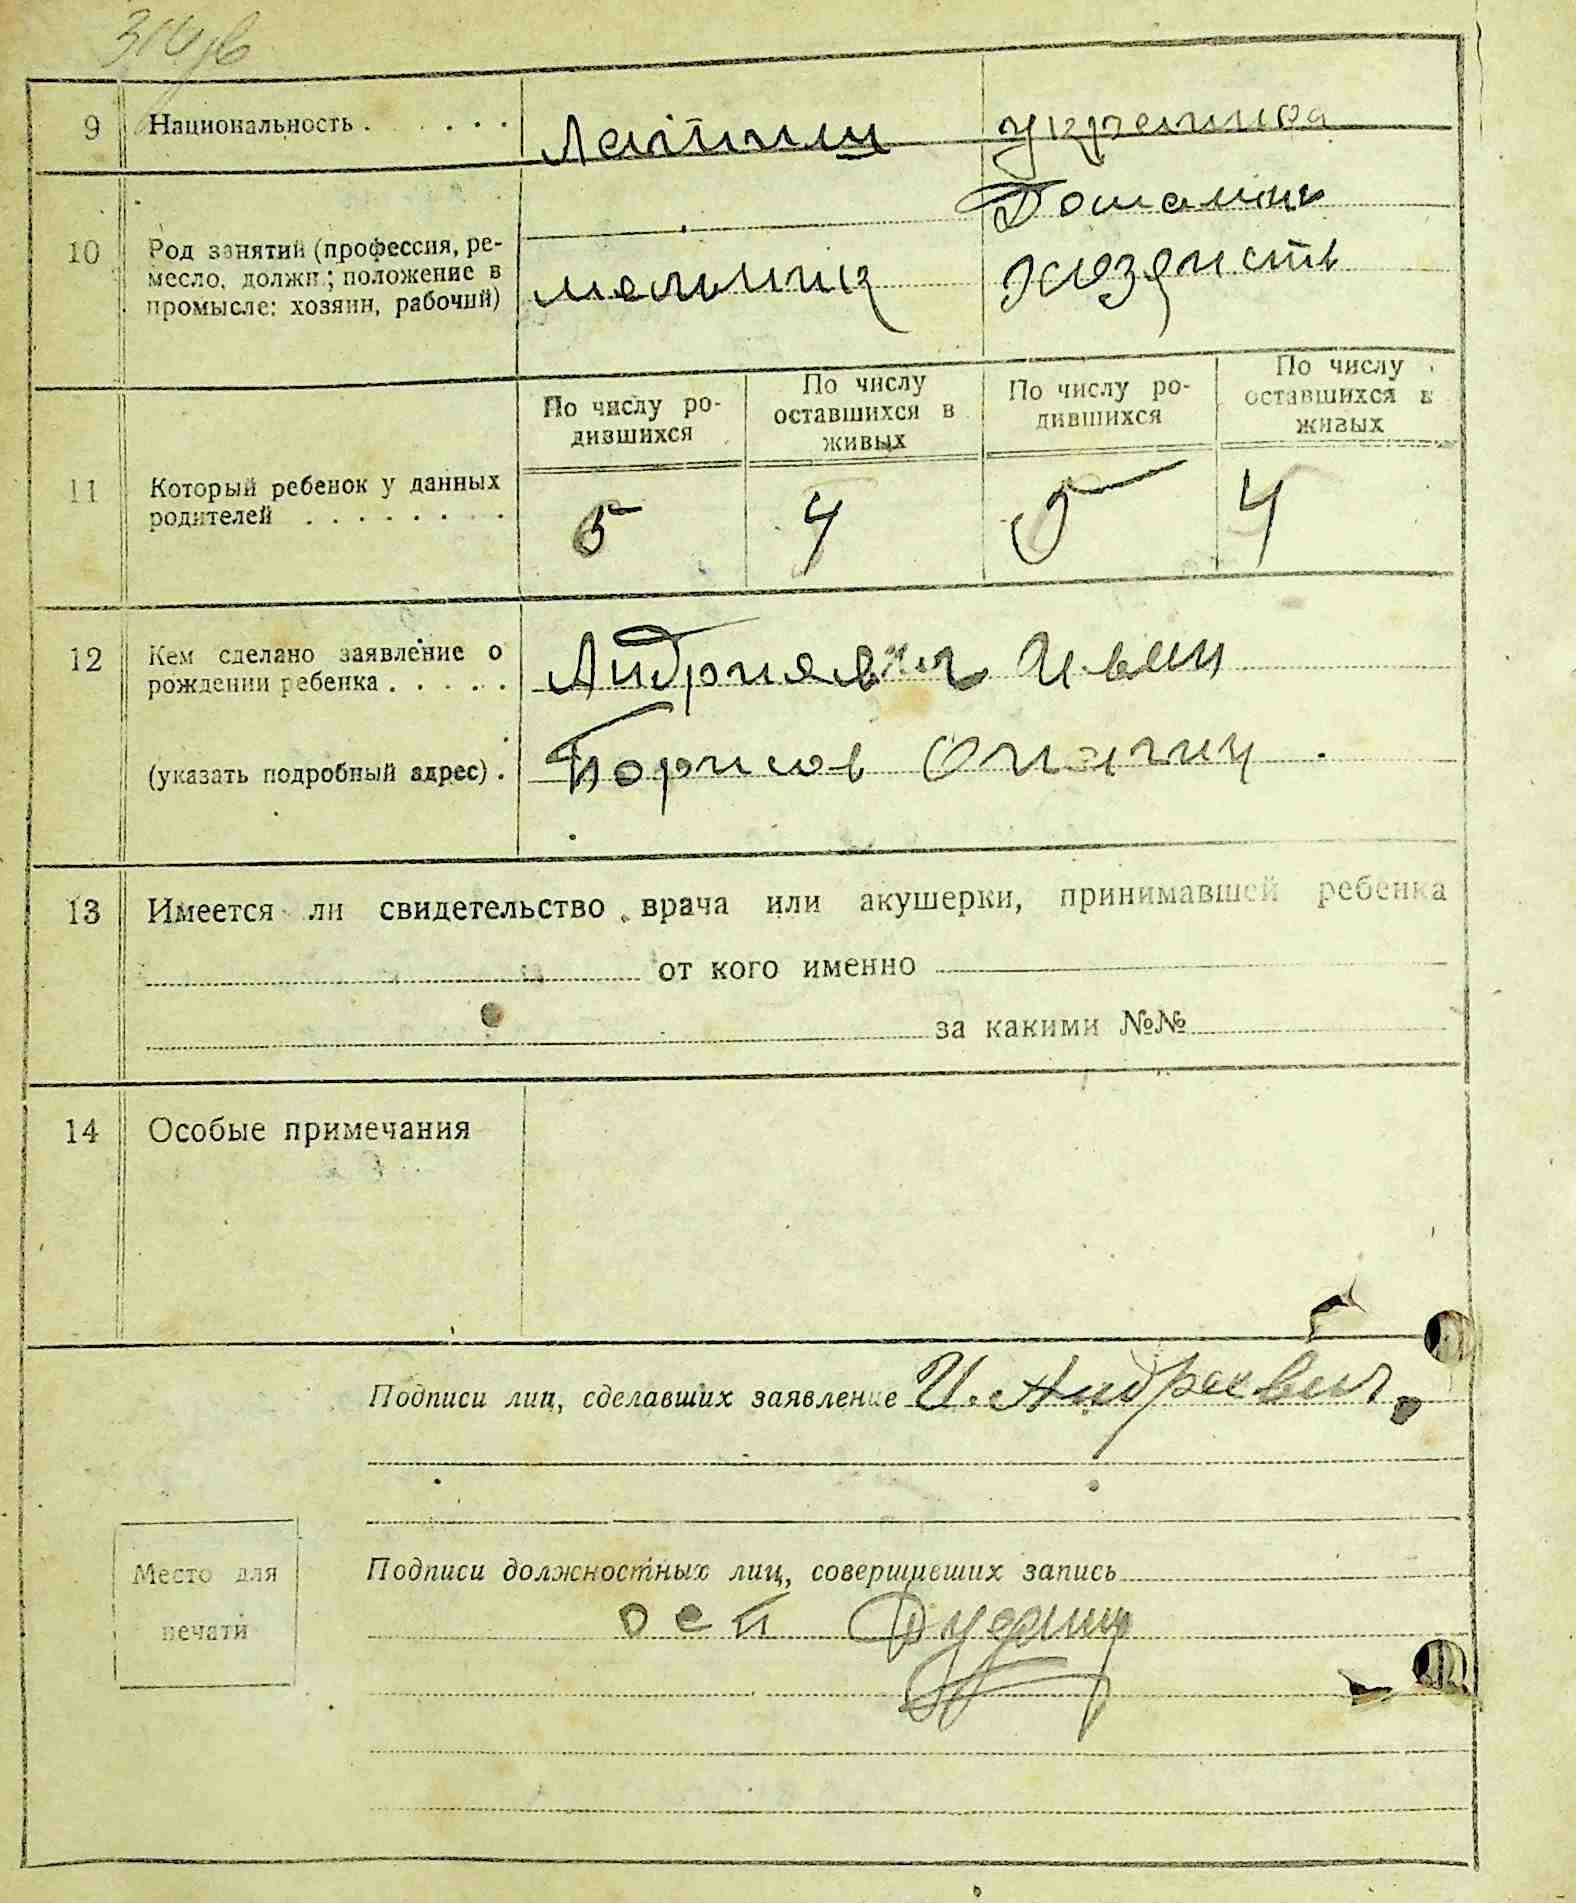 9 Национальность . . . . . . Латиш украинка
Домашнь
10 Род занятий (профессия, ре-
месло, должн.; положение в
промысле: хозяин, рабочий)
мельник хозяиств
По числу ро-
дившихся
По числу
оставшихся в
живых
По числу ро-
дившихся
По числу
оставшихся в
живых
11 Который ребенок у данных
родителей . . . . . . . .
5 4 5 4
12 Кем сделано заявление о
рождении ребенка . . . . .
Иван
(указать подробный адрес) .
Борисов
13 Имеется ли свидетельство врача или акушерки, принимавшей ребенка
от кого именно
за какими №№
14 Особые примечания
Подписи лиц, сделавших заявление И. Андреевич
Место для
печати
Подписи должностных лиц, совершивших запись